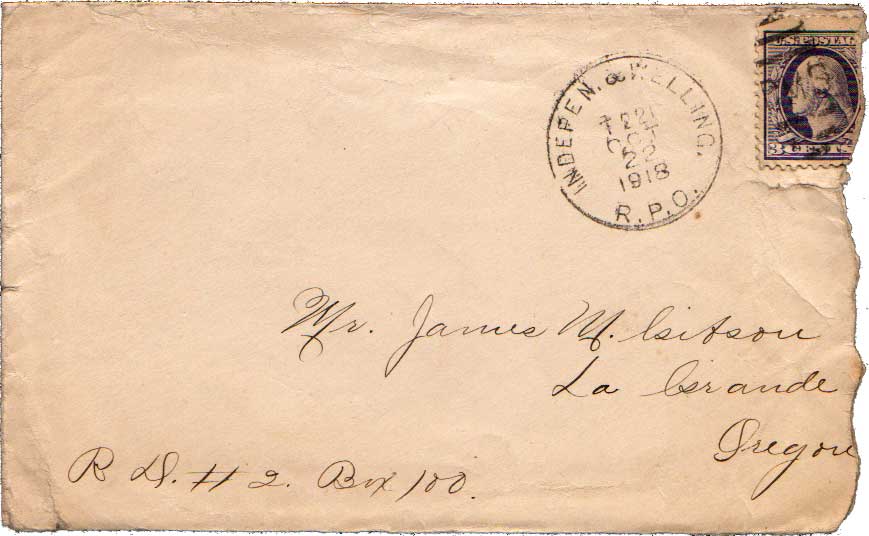 U.S. POSTAG
3 CENTS
INDEPEN. & WELLING.
T 221
OCT
22
1918
R.P.O.
Mr. James M. Gitson
La Grande
Oregon
R D. # 2. Box 100.